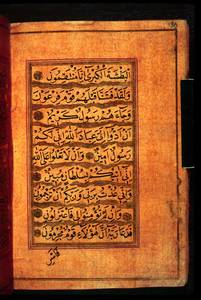 البطشة الكبرى انا منتقمون
ولقد فتنا قبلهم قوم فرعون
وجاءهم رسول كريم
ان ادوا الي عباد الله اني لكم
رسول امين وان لا تعلوا على الله
اني اتيكم بسلطان مبين
واني عذت بربي وربكم ان ترجمون
وان لم تؤمنوا لي فاعتزلون
فدعا ربه ان هؤلاء قوم مجرمون